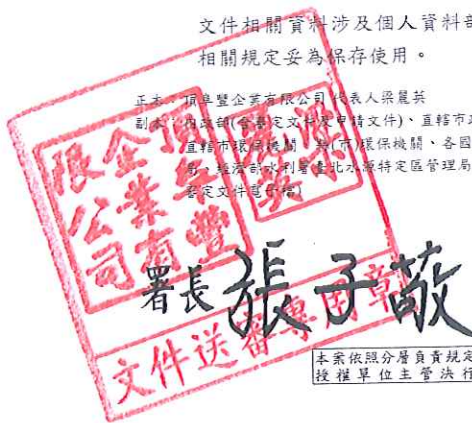 文件相關資料涉及個人資料部
相關規定妥為保存使用。
正本：頂阜豐企業有限公司 代表人梁麗英
副本：內政部(含審定文件及申請文件)、直轄市政
直轄市環保機關、縣(市)環保機關、各國
局、經濟部水利署臺北水源特定區管理局
審定文件電子檔)
頂阜豐
企業有
限公司
梁麗
英
署長 張子敬
文件送審專用章
本案依照分層負責規定
授權單位主管決行